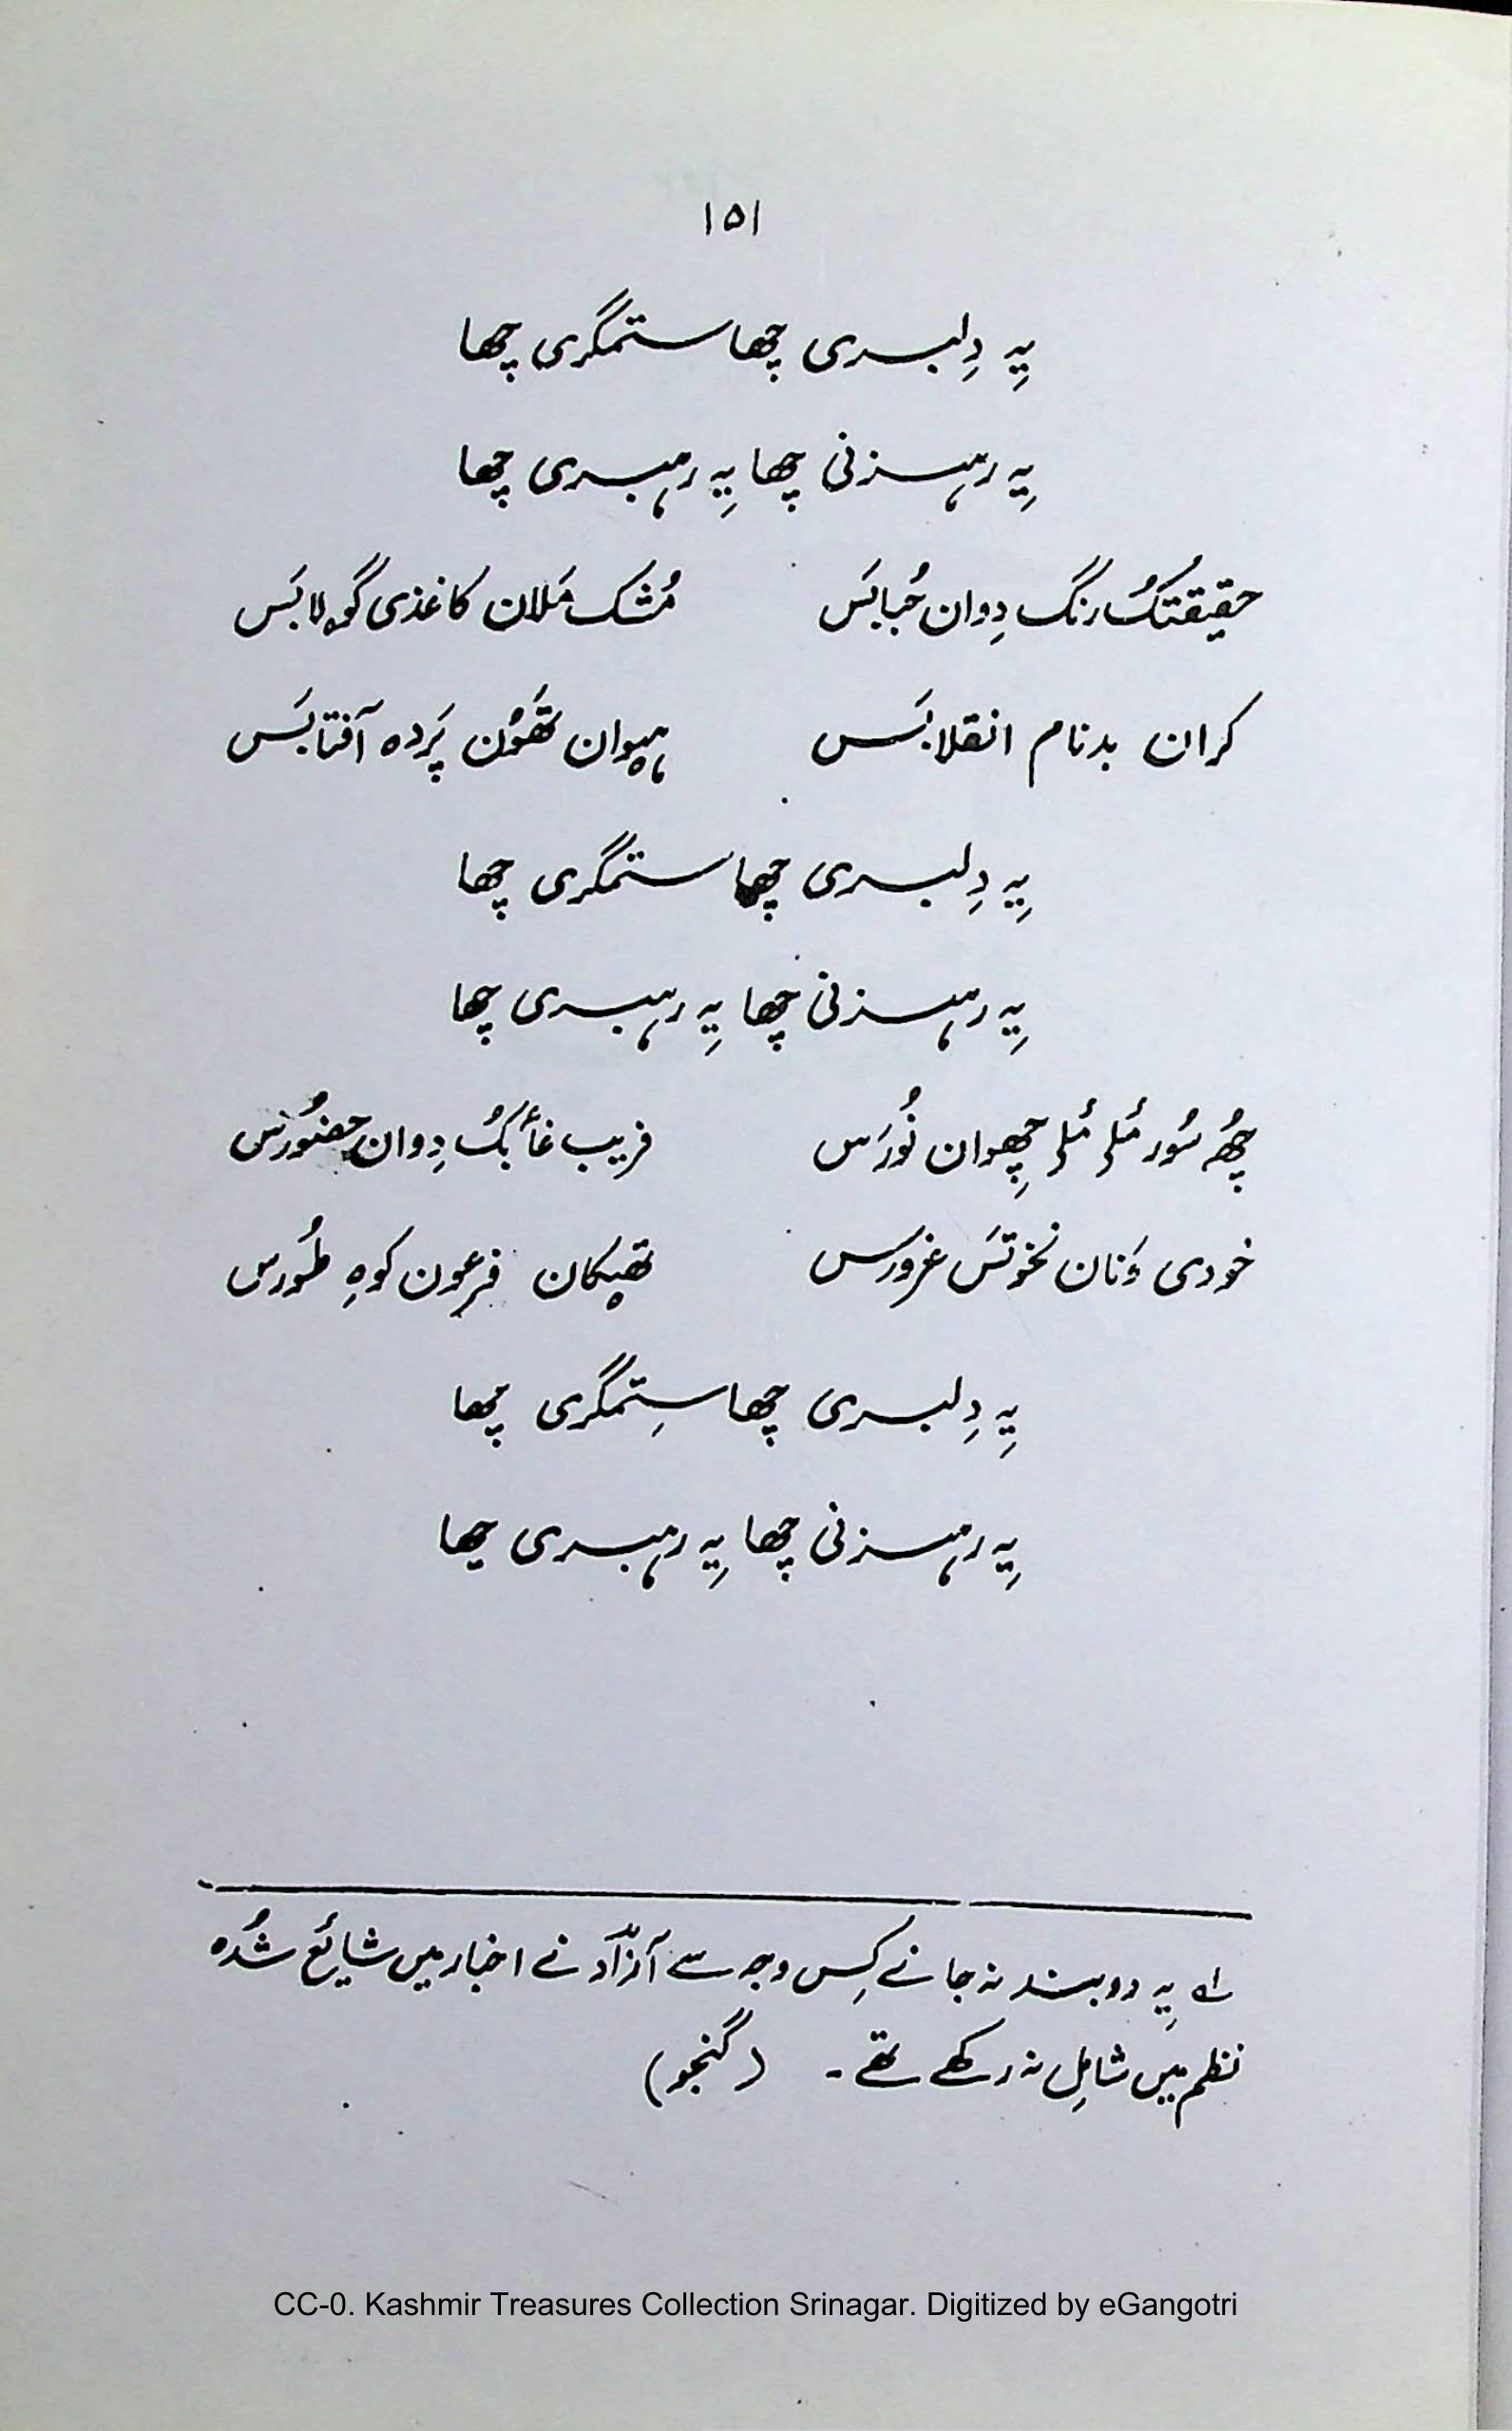 ۱۵۱
یِہ دِلبری چھا ستمگری چھا
یِہ رہزنی چھا یِہ رہبری چھا
حقیقتکُ رنگ دِوان حُبابَس مُشک مَلان کاغذی گۄلابَس
کران بدنام انقلابَس ہیوان تھَوُن پَردہ آفتابَس
یِہ دِلبری چھا ستمگری چھا
یِہ رہزنی چھا یِہ رہبری چھا
چھُ سُور مٔلی مٔلی چھِوان نُورَس فریب غأبکُ دِوان حضوُرس
خودی وَنان نخوتَس غرورس تھپکان فرعون کوہِ طُورس
یِہ دِلبری چھا سِتمگری چھا
یِہ رہزنی چھا یِہ رہبری چھا
لے یِہ دو بند نہ جانے کِس وجہ سے آزاؔد نے اخبار میں شایٔع شُدہ
نظم میں شامِل نہ رکھے تھے۔ (گنجو)
CC-0. Kashmir Treasures Collection Srinagar. Digitized by eGangotri